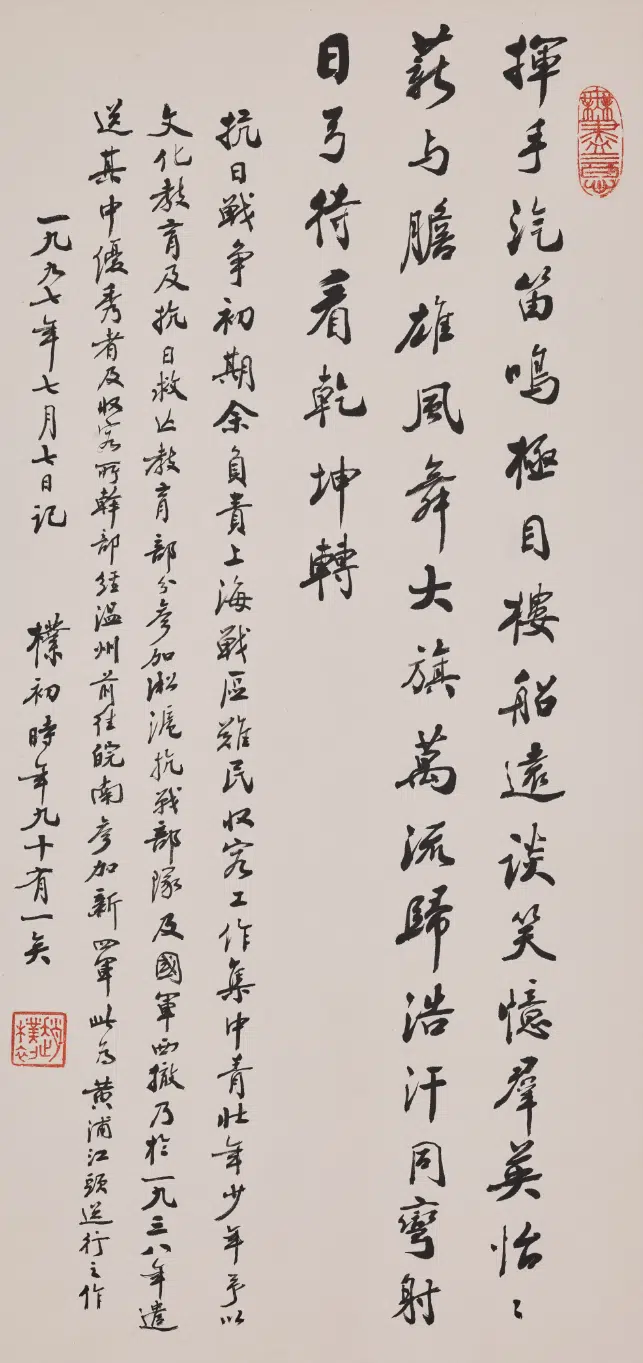 無盡意
揮手汽笛鳴極目樓船遠談笑憶羣英怡〻
薪与膽雄風舞大旗萬流歸浩汗同彎射
日弓待看乾坤轉
抗日戰争初期余負責上海戰區難民収容工作集中青壮年少年予以
文化教育及抗日救亡教育部分參加淞滬抗戰部隊及國軍西撤乃於一九三八年遣
送其中優秀者及収容所幹部經温州前往皖南參加新四軍此為黄浦江頭送行之作
一九九七年七月七日記 樸初時年九十有一矣
趙樸初